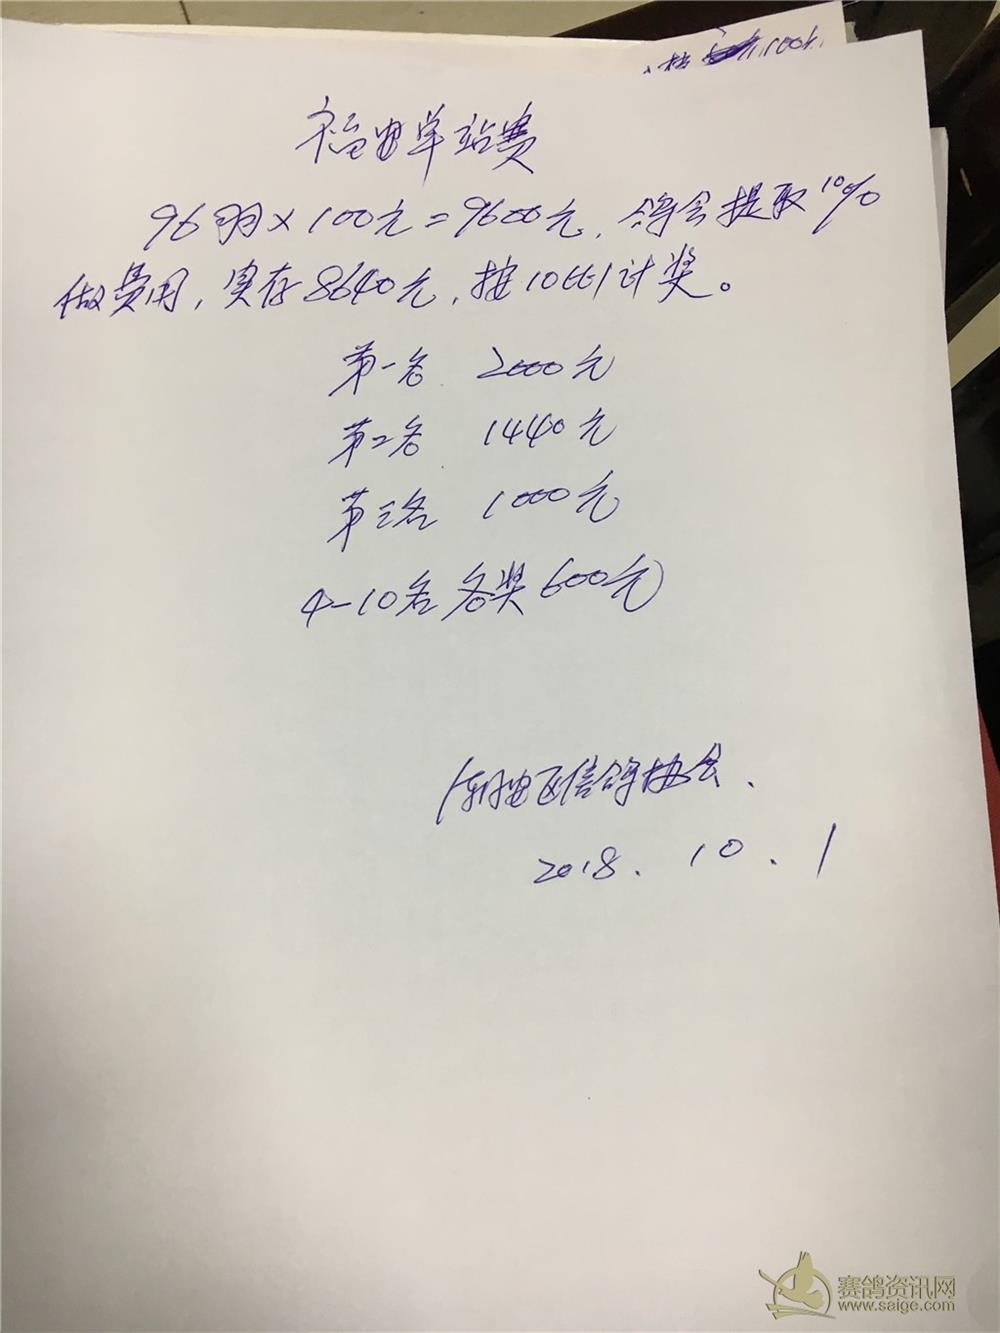 按 100元
福田单站赛
96羽×100元=9600元，鸽会提取10%
做费用，实存8640元，按10比1计奖。
第一名 2000元
第二名 1440元
第三名 1000元
4-10名各奖600元
信鸽协会.
2018.10.1
赛鸽资讯网
www.saige.com